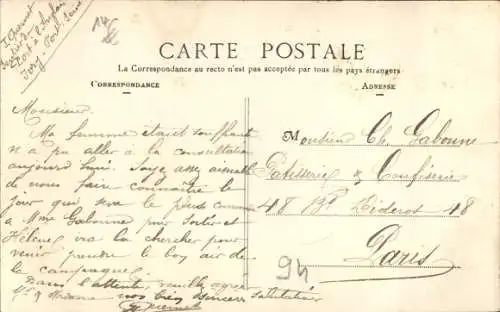 CARTE POSTALE
La Correspondance au recto n'est pas acceptée par tous les pays étrangers
CORRESPONDANCE
ADRESSE
Monsieur.
Ma femme étais souffrante
n'a pu aller à la consultation
aujourd'hui. Soyez assez aimable
de nous faire connaitre le
jour que sera le plus
a Mme Gabonne pour sortir et
Hélène ira la chercher pour
venir prendre le bon air de
la campagne.
Dans l'attente, veuillez agréer
Mr & Madame nos bien sincères salutations
Monsieur Ch. Gabonne
Patisserie & Confiserie
48 Bd Diderot 48
Paris
94